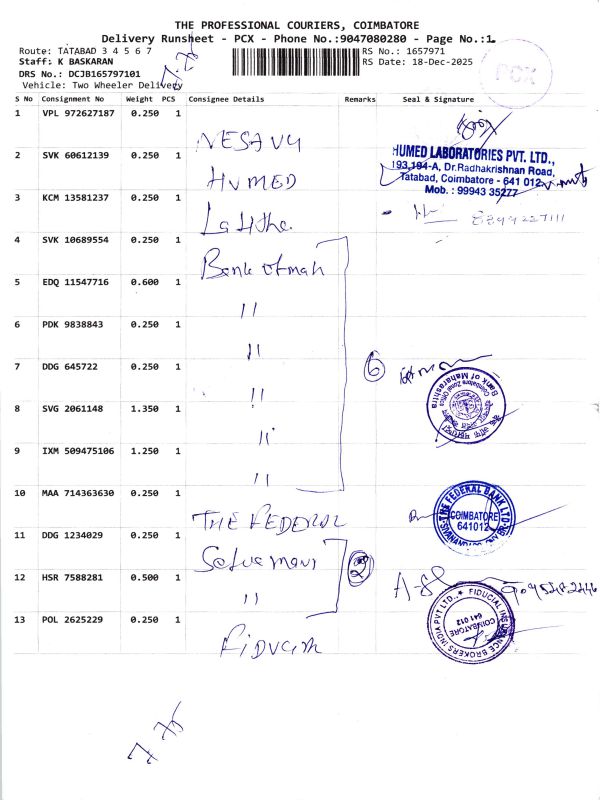 THE PROFESSIONAL COURIERS, COIMBATORE
Delivery Runsheet - PCX - Phone No.:9047080280 - Page No.:1
Route: TATABAD 3 4 5 6 7
RS No.: 1657971
Staff: K BASKARAN
RS Date: 18-Dec-2025
DRS No.: DCJB165797101
Vehicle: Two Wheeler Delivery
PCX
S No Consignment No Weight PCS Consignee Details Remarks Seal & Signature
1 VPL 972627187 0.250 1
2 SVK 60612139 0.250 1 HUMED
HUMED LABORATORIES PVT. LTD.,
193,194-A, Dr.Radhakrishnan Road,
Tatabad, Coimbatore - 641 012
Mob. : 99943 35277
3 KCM 13581237 0.250 1 Lalitha
4 SVK 10689554 0.250 1 Bank of mah
5 EDQ 11547716 0.600 1 "
6 PDK 9838843 0.250 1 "
7 DDG 645722 0.250 1 " 6
Bank of Maharashtra
Coimbatore Zonal Office
8 SVG 2061148 1.350 1 "
9 IXM 509475106 1.250 1 "
10 MAA 714363630 0.250 1 THE FEDERAL
THE FEDERAL BANK LTD
COIMBATORE
641012
11 DDG 1234029 0.250 1 2
12 HSR 7588281 0.500 1 "
13 POL 2625229 0.250 1
FIDUCIAL INSURANCE BROKERS INDIA PVT LTD.,
COIMBATORE
641 012